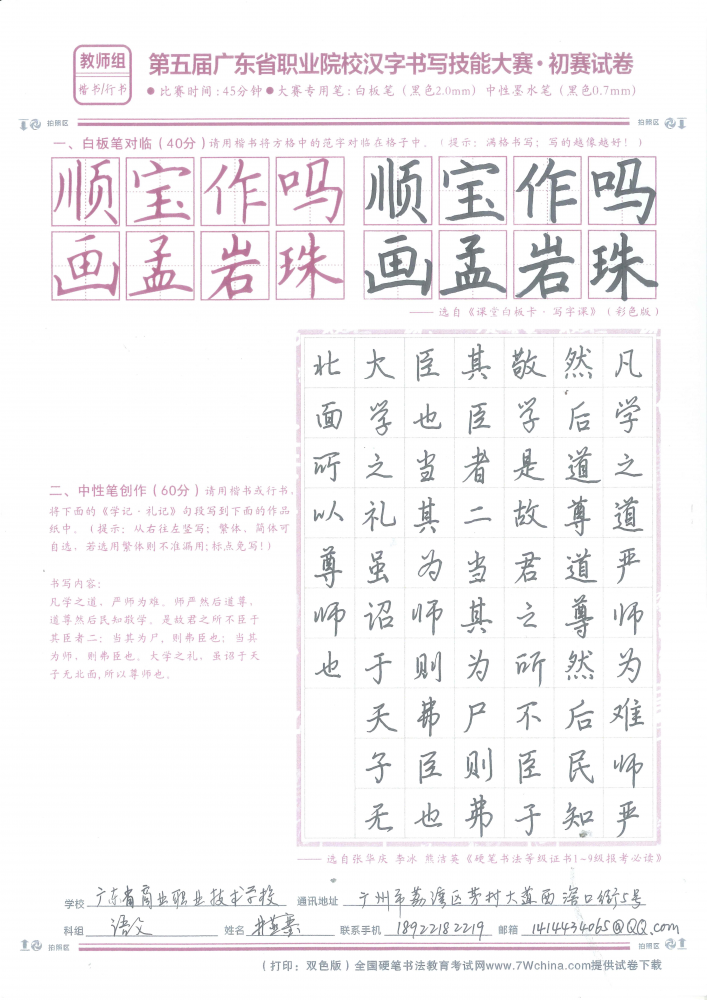 教师组
楷书/行书
第五届广东省职业院校汉字书写技能大赛·初赛试卷
●比赛时间:45分钟●大赛专用笔:白板笔(黑色2.0mm) 中性墨水笔(黑色0.7mm)
拍照区
拍照区
一、白板笔对临(40分)请用楷书将方格中的范字对临在格子中。(提示:满格书写;写的越像越好!)
顺宝作吗
画孟岩珠
顺宝作吗
画孟岩珠
——选自《课堂白板卡·写字课》(彩色版)
二、中性笔创作(60分)请用楷书或行书,
将下面的《学记·礼记》句段写到下面的作品
纸中。(提示:从右往左竖写;繁体、简体可
自选,若选用繁体则不准漏用;标点免写!)
书写内容:
凡学之道,严师为难。师严然后道尊,
道尊然后民知敬学。是故君之所不臣于
其臣者二:当其为尸,则弗臣也;当其
为师,则弗臣也。大学之礼,虽诏于天
子无北面,所以尊师也。
凡学之道严师为难师严
然后道尊道尊然后民知
敬学是故君之所不臣于
其臣者二当其为尸则弗
臣也当其为师则弗臣也
大学之礼虽诏于天子无
北面所以尊师也
——选自张华庆 李冰 熊洁英《硬笔书法等级证书1-9级报考必读》
学校 广东省商业职业技术学校 通讯地址 广州市荔湾区芳村大道西滘口街5号
科组 语文 姓名 联系手机 18922182219 邮箱 1414434065@QQ.com
拍照区
拍照区
(打印:双色版)全国硬笔书法教育考试网www.7Wchina.com提供试卷下载